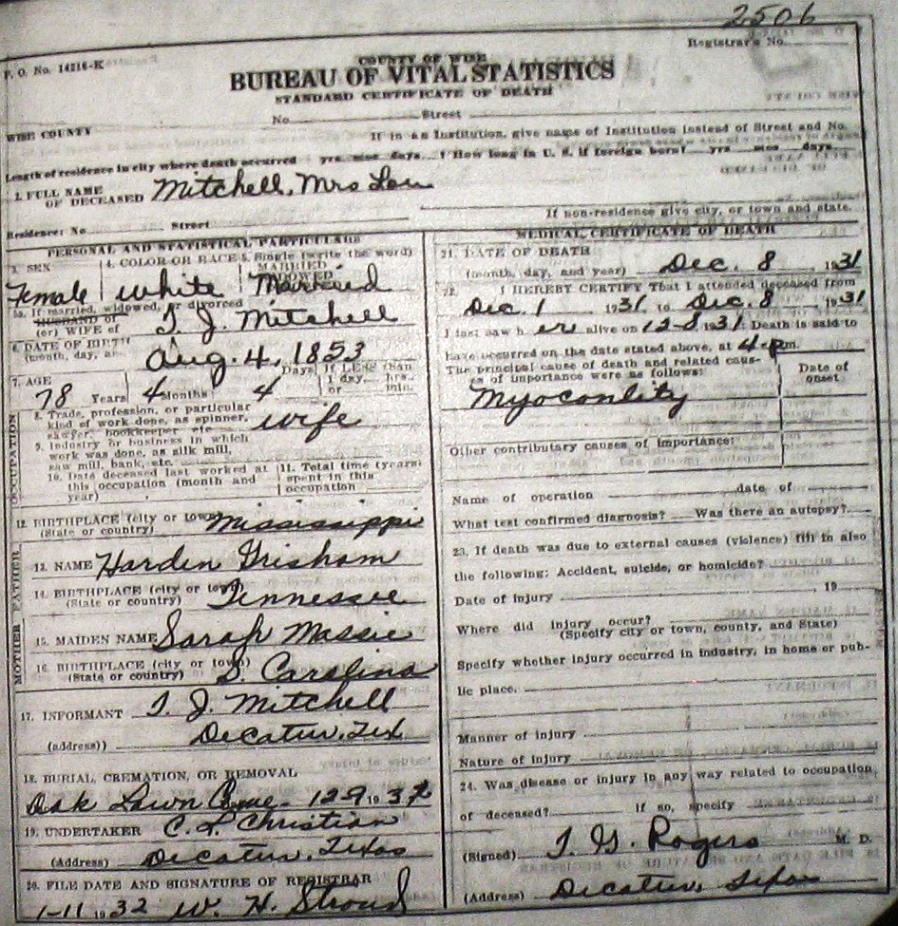 2506
Registrar's No.
F. O. No. 14216-K
COUNTY OF WISE
BUREAU OF VITAL STATISTICS
STANDARD CERTIFICATE OF DEATH
No Street
WISE COUNTY
If in an Institution, give name of Institution instead of Street and No.
Length of residence in city where death occurred yrs. mos. days. How long in U. S. if foreign born? yrs mos days.
1. FULL NAME OF DECEASED Mitchell, Mrs Lou
Residence: No Street
If non-residence give city, or town and state.
PERSONAL AND STATISTICAL PARTICULARS
3. SEX 4. COLOR OR RACE 5. Single (write the word)
MARRIED
WIDOWED
Female white Married
5a. If married, widowed, or divorced
HUSBAND of
WIFE of T. J. Mitchell
6. DATE OF BIRTH
(month, day, an
Aug. 4, 1853
7. AGE Days If LESS than
1 day, hrs.
78 Years 4 Months 4 or min.
OCCUPATION
8. Trade, profession, or particular
kind of work done, as spinner, wife
sawyer, bookkeeper etc
9. Industry or business in which
work was done, as silk mill,
saw mill, bank, etc.
10. Date deceased last worked at
this occupation (month and
year)
11. Total time (years)
spent in this
occupation
12. BIRTHPLACE (city or town) Mississippi
(State or country)
FATHER
13. NAME Harden Grisham
14. BIRTHPLACE (city or town)
(State or country) Tennessee
MOTHER
15. MAIDEN NAME Sarah Massie
16. BIRTHPLACE (city or town)
(State or country) S. Carolina
17. INFORMANT T. J. Mitchell
(address)) Decatur, Tex
18. BURIAL, CREMATION, OR REMOVAL
Oak Lawn Ceme. 12-9 19 31
19. UNDERTAKER C. L. Christian
(Address) Decatur, Texas
20. FILE DATE AND SIGNATURE OF REGISTRAR
1-11 1932 W. H. Stroud
MEDICAL CERTIFICATE OF DEATH
21. DATE OF DEATH
(month, day, and year) Dec. 8 1931
22. I HEREBY CERTIFY That I attended deceased from
Dec. 1 1931, to Dec. 8 1931
I last saw her alive on 12-8 1931. Death is said to
have occurred on the date stated above, at 4 pm.
The principal cause of death and related caus-
es of importance were as follows:
Date of
onset
Myoconlity
Other contributary causes of importance:
Name of operation date of
What test confirmed diagnosis? Was there an autopsy?
23. If death was due to external causes (violence) fill in also
the following: Accident, suicide, or homicide?
Date of injury 19
Where did injury occur?
(Specify city or town, county, and State)
Specify whether injury occurred in industry, in home or pub-
lic place.
Manner of injury
Nature of injury
24. Was disease or injury in any way related to occupation
of deceased? If so, specify
(Signed) T. G. Rogers M. D.
(Address) Decatur, Texas